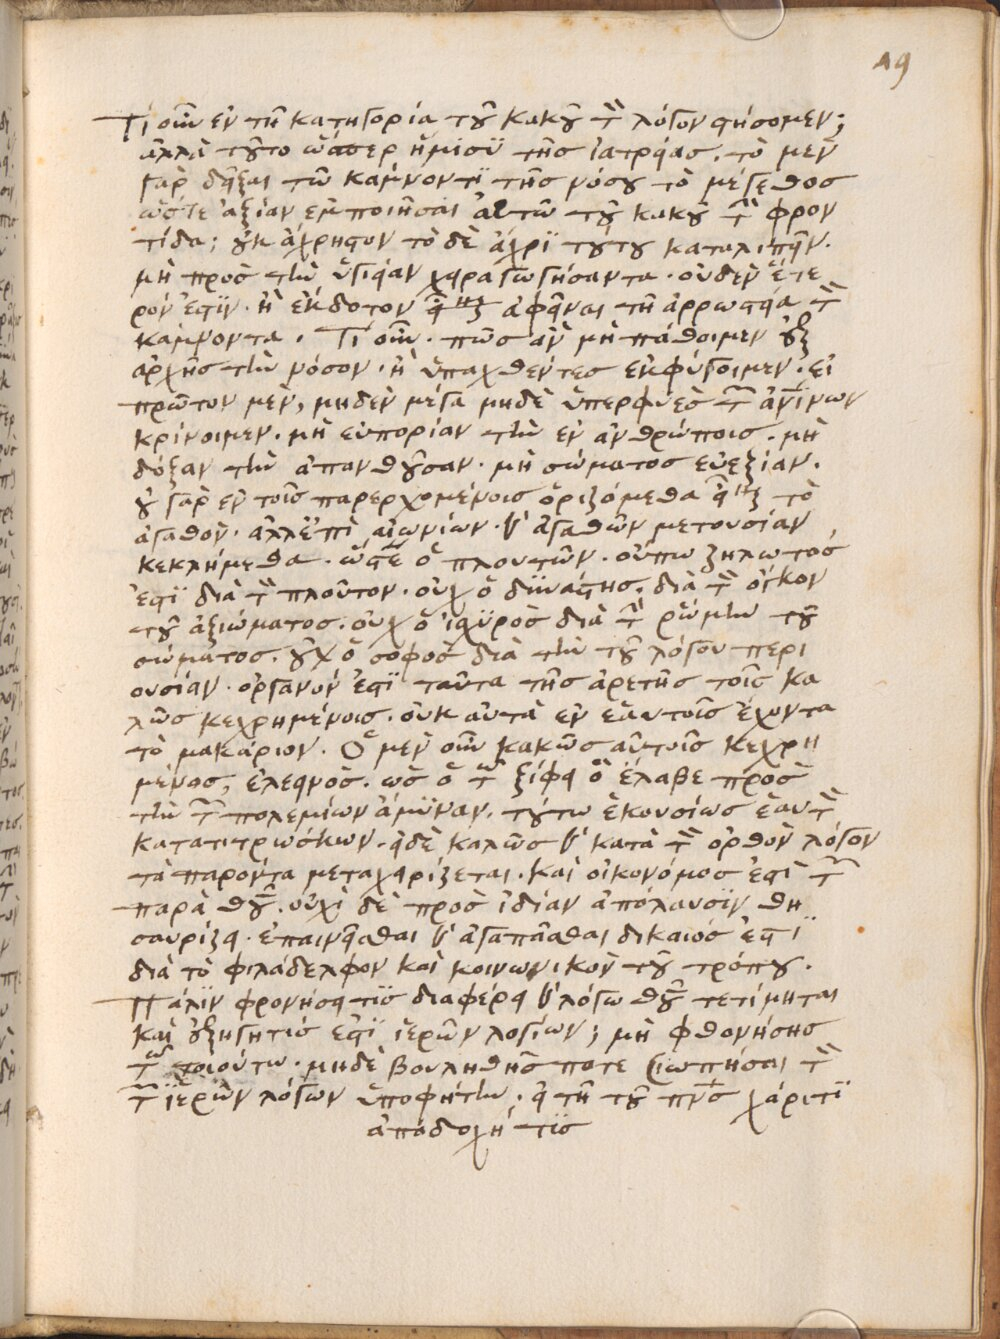 19
Τί οὖν ἐν τῆ κατηγορία τοῦ κακοῦ τὸν λόγον φήσομεν;
ἀλλὰ τοῦτο ὥσπερ ἥμισυ τῆς ἰατρείας. τὸ μὲν
γὰρ δεῖξαι τῶ κάμνοντι τῆς νόσου τὸ μέγεθος
ὥστε ἀξίαν ἐμποιῆσαι αὐτῶ τοῦ κακοῦ τὴν φρον
τίδα; οὐκ ἄχρηστον τὸ δὲ ἄχρι τούτου καταλιπεῖν.
μὴ πρὸς τὴν ὑγιείαν χειραγωγήσαντα. οὐδὲν ἕτε
ρόν ἐστιν. ἢ ἔκδοτον ἀφεῖναι τῆ ἀρρωστεία τὸν
κάμνοντα. Τί οὖν. πῶς ἂν μὴ πάθοιμεν ἐξ
ἀρχῆς τὴν νόσον. ἢ ὑπαχθέντες ἐκφύγοιμεν. εἰ
πρῶτον μὲν, μηδὲν μέγα μηδὲ ὑπερφυὲς τῶν ἀνίνων
κρίνοιμεν. μὴ εὐπορίαν τὴν ἐν ἀνθρώποις. μὴ
δόξαν τὴν ἀπανθοῦσαν. μὴ σώματος εὐεξίαν.
οὐ γὰρ ἐν τοῖς παρερχομένοις ὁριζόμεθα τὸ
ἀγαθόν. ἀλλ' ἐπὶ αἰωνίων. καὶ ἀγαθῶν μετουσίαν
κεκλήμεθα. ὥστε ὁ πλουτῶν. οὔπω ζηλωτός
ἐστι διὰ τὸν πλοῦτον. οὐχ ὁ δυνάστης. διὰ τὸν ὄγκον
τοῦ ἀξιώματος. οὐχ ὁ ἰσχυρὸς διὰ τὴν ῥώμην τοῦ
σώματος. οὐχ ὁ σοφὸς διὰ τὴν τοῦ λόγου περι
ουσίαν. ὄργανόν ἐστι ταῦτα τῆς ἀρετῆς τοῖς κα
λῶς κεχρημένοις. οὐκ αὐτὰ ἐν ἑαυτοῖς ἔχοντα
τὸ μακάριον. Ὁ μὲν οὖν κακῶς αὐτοῖς κεχρη
μένος, ἐλεεινὸς. ὡς ὁ τῶ ξίφει ὃ ἔλαβε πρὸς
τὴν τῶν πολεμίων ἄμυναν. τούτω ἑκουσίως ἑαυτὸν
κατατιτρώσκων. εἰ δὲ καλῶς καὶ κατὰ τὸν ὀρθὸν λόγον
τὰ παρόντα μεταχειρίζεται. καὶ οἰκονόμος ἐστὶ τῶν
παρὰ θυ. οὐχὶ δὲ πρὸς ἰδίαν ἀπόλαυσιν θη
σαυρίζει. ἐπαινεῖσθαι καὶ ἀγαπᾶσθαι δίκαιός ἐστι
διὰ τὸ φιλάδελφον καὶ κοινωνικὸν τοῦ τρόπου.
Πάλιν φρονήσει τις διαφέρει καὶ λόγω θυ τετίμηται
καὶ ἐξηγητίς ἐστι ἱερῶν λογίων; μὴ φθονήσης
τῶ τοιούτω. μηδὲ βουληθῆς ποτε σιωπῆσαι τὸν
τῶν ἱερῶν λόγων ὑποφήτην. εἰ τῆ τοῦ πνς χάριτι
ἀποδοχή τις